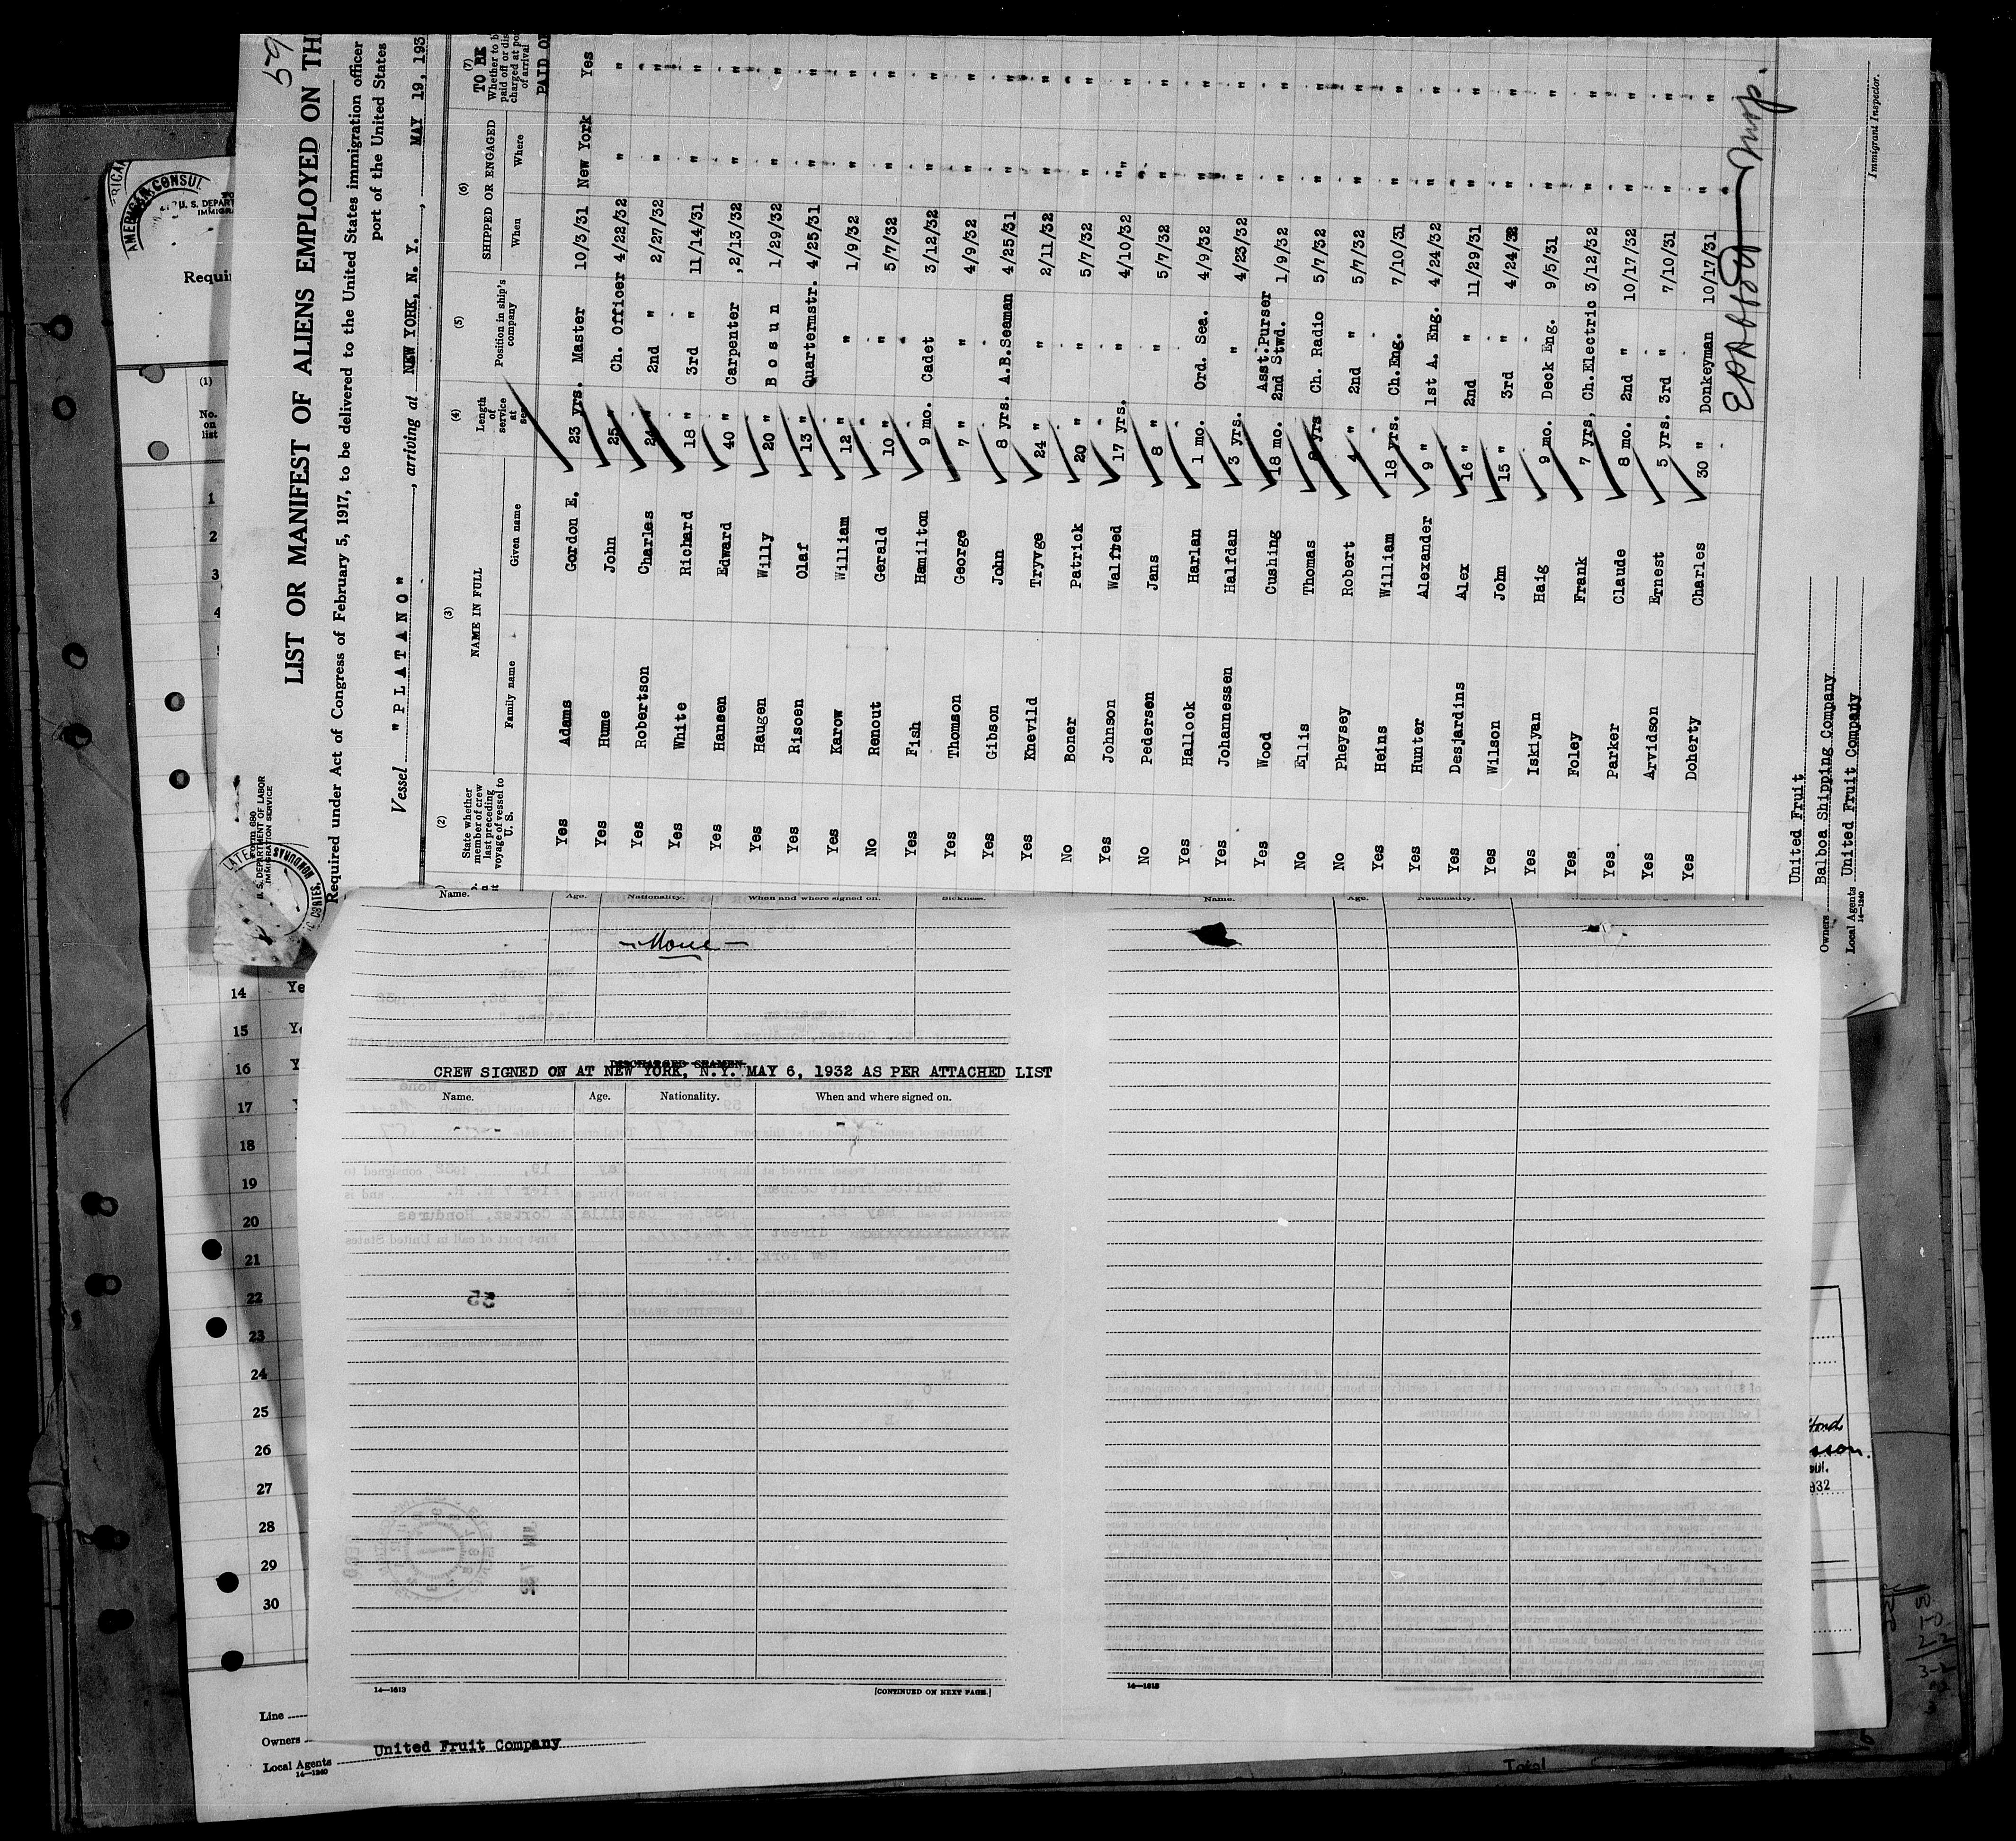 59
LIST OR MANIFEST OF ALIENS EMPLOYED ON TH
Required under Act of Congress of February 5, 1917, to be delivered to the United States immigration officer
port of the United States
Vessel "PLATANO", arriving at NEW YORK, N. Y., MAY 19, 193
Form 680
U. S. DEPARTMENT OF LABOR
IMMIGRATION SERVICE
(2) (3) (4) (5) (6) (7)
State whether member of crew last preceding voyage of vessel to U. S.
NAME IN FULL
Family name Given name
Length of service at sea
Position in ship's company
SHIPPED OR ENGAGED
When Where
TO BE
Whether to b
paid off or dis
charged at po
of arrival
PAID OF
Yes Adams Gordon E. 23 yrs. Master 10/3/31 New York Yes
Yes Hume John 25 " Ch. Officer 4/22/32 " "
Yes Robertson Charles 24 " 2nd " 2/27/32 " "
Yes White Richard 18 " 3rd " 11/14/31 " "
Yes Hansen Edward 40 " Carpenter 2/13/32 " "
Yes Haugen Willy 20 " Bosun 1/29/32 " "
Yes Risoen Olaf 13 " Quartermstr. 4/25/31 " "
Yes Karow William 12 " " 1/9/32 " "
No Renout Gerald 10 " " 5/7/32 " "
Yes Fish Hamilton 9 mo. Cadet 3/12/32 " "
Yes Thomson George 7 " " 4/9/32 " "
Yes Gibson John 8 yrs. A.B.Seaman 4/25/31 " "
Yes Knevild Tryvge 24 " " 2/11/32 " "
No Boner Patrick 20 " " 5/7/32 " "
Yes Johnson Walfred 17 yrs. " 4/10/32 " "
No Pedersen Jans 8 " " 5/7/32 " "
Yes Hallock Harlan 1 mo. Ord. Sea. 4/9/32 " "
Yes Johannessen Halfdan 3 yrs. " 4/23/32 " "
Yes Wood Cushing 18 mo. Asst.Purser 2nd Stwd. 1/9/32 " "
No Ellis Thomas yrs Ch. Radio 5/7/32 " "
No Pheysey Robert 4 " 2nd " 5/7/32 " "
Yes Heins William 18 yrs. Ch.Eng. 7/10/31 " "
Yes Hunter Alexander 9 " 1st A. Eng. 4/24/32 " "
Yes Desjardins Alex 16 " 2nd " 11/29/31 " "
Yes Wilson John 15 " 3rd " 4/24/32 " "
Yes Iskiyan Haig 9 mo. Deck Eng. 9/5/31 " "
Yes Foley Frank 7 yrs, Ch.Electric 3/12/32 " "
Yes Parker Claude 8 mo. 2nd " 10/17/32 " "
Yes Arvidson Ernest 5 yrs. 3rd " 7/10/31 " "
Yes Doherty Charles 30 " Donkeyman 10/17/31 " "
Immigrant Inspector.
United Fruit
Owners Balboa Shipping Company
Local Agents United Fruit Company
14—1240
AMERICAN CONSUL
U. S. DEPART
IMMIGRA
Requi
(1)
No. on list
1
2
3
4
14 Ye
15 Ye
16 Y
17 Y
18
19
20
21
22
23
24
25
26
27
28
29
30
Name. Age. Nationality. When and where signed on. Sickness.
—None—
Name. Age. Nationality.
DISCHARGED SEAMEN.
CREW SIGNED ON AT NEW YORK, N.Y. MAY 6, 1932 AS PER ATTACHED LIST
Name. Age. Nationality. When and where signed on.
14—1613
[CONTINUED ON NEXT PAGE.]
14—1613
Line
Owners
Local Agents United Fruit Company
14—1240
Total